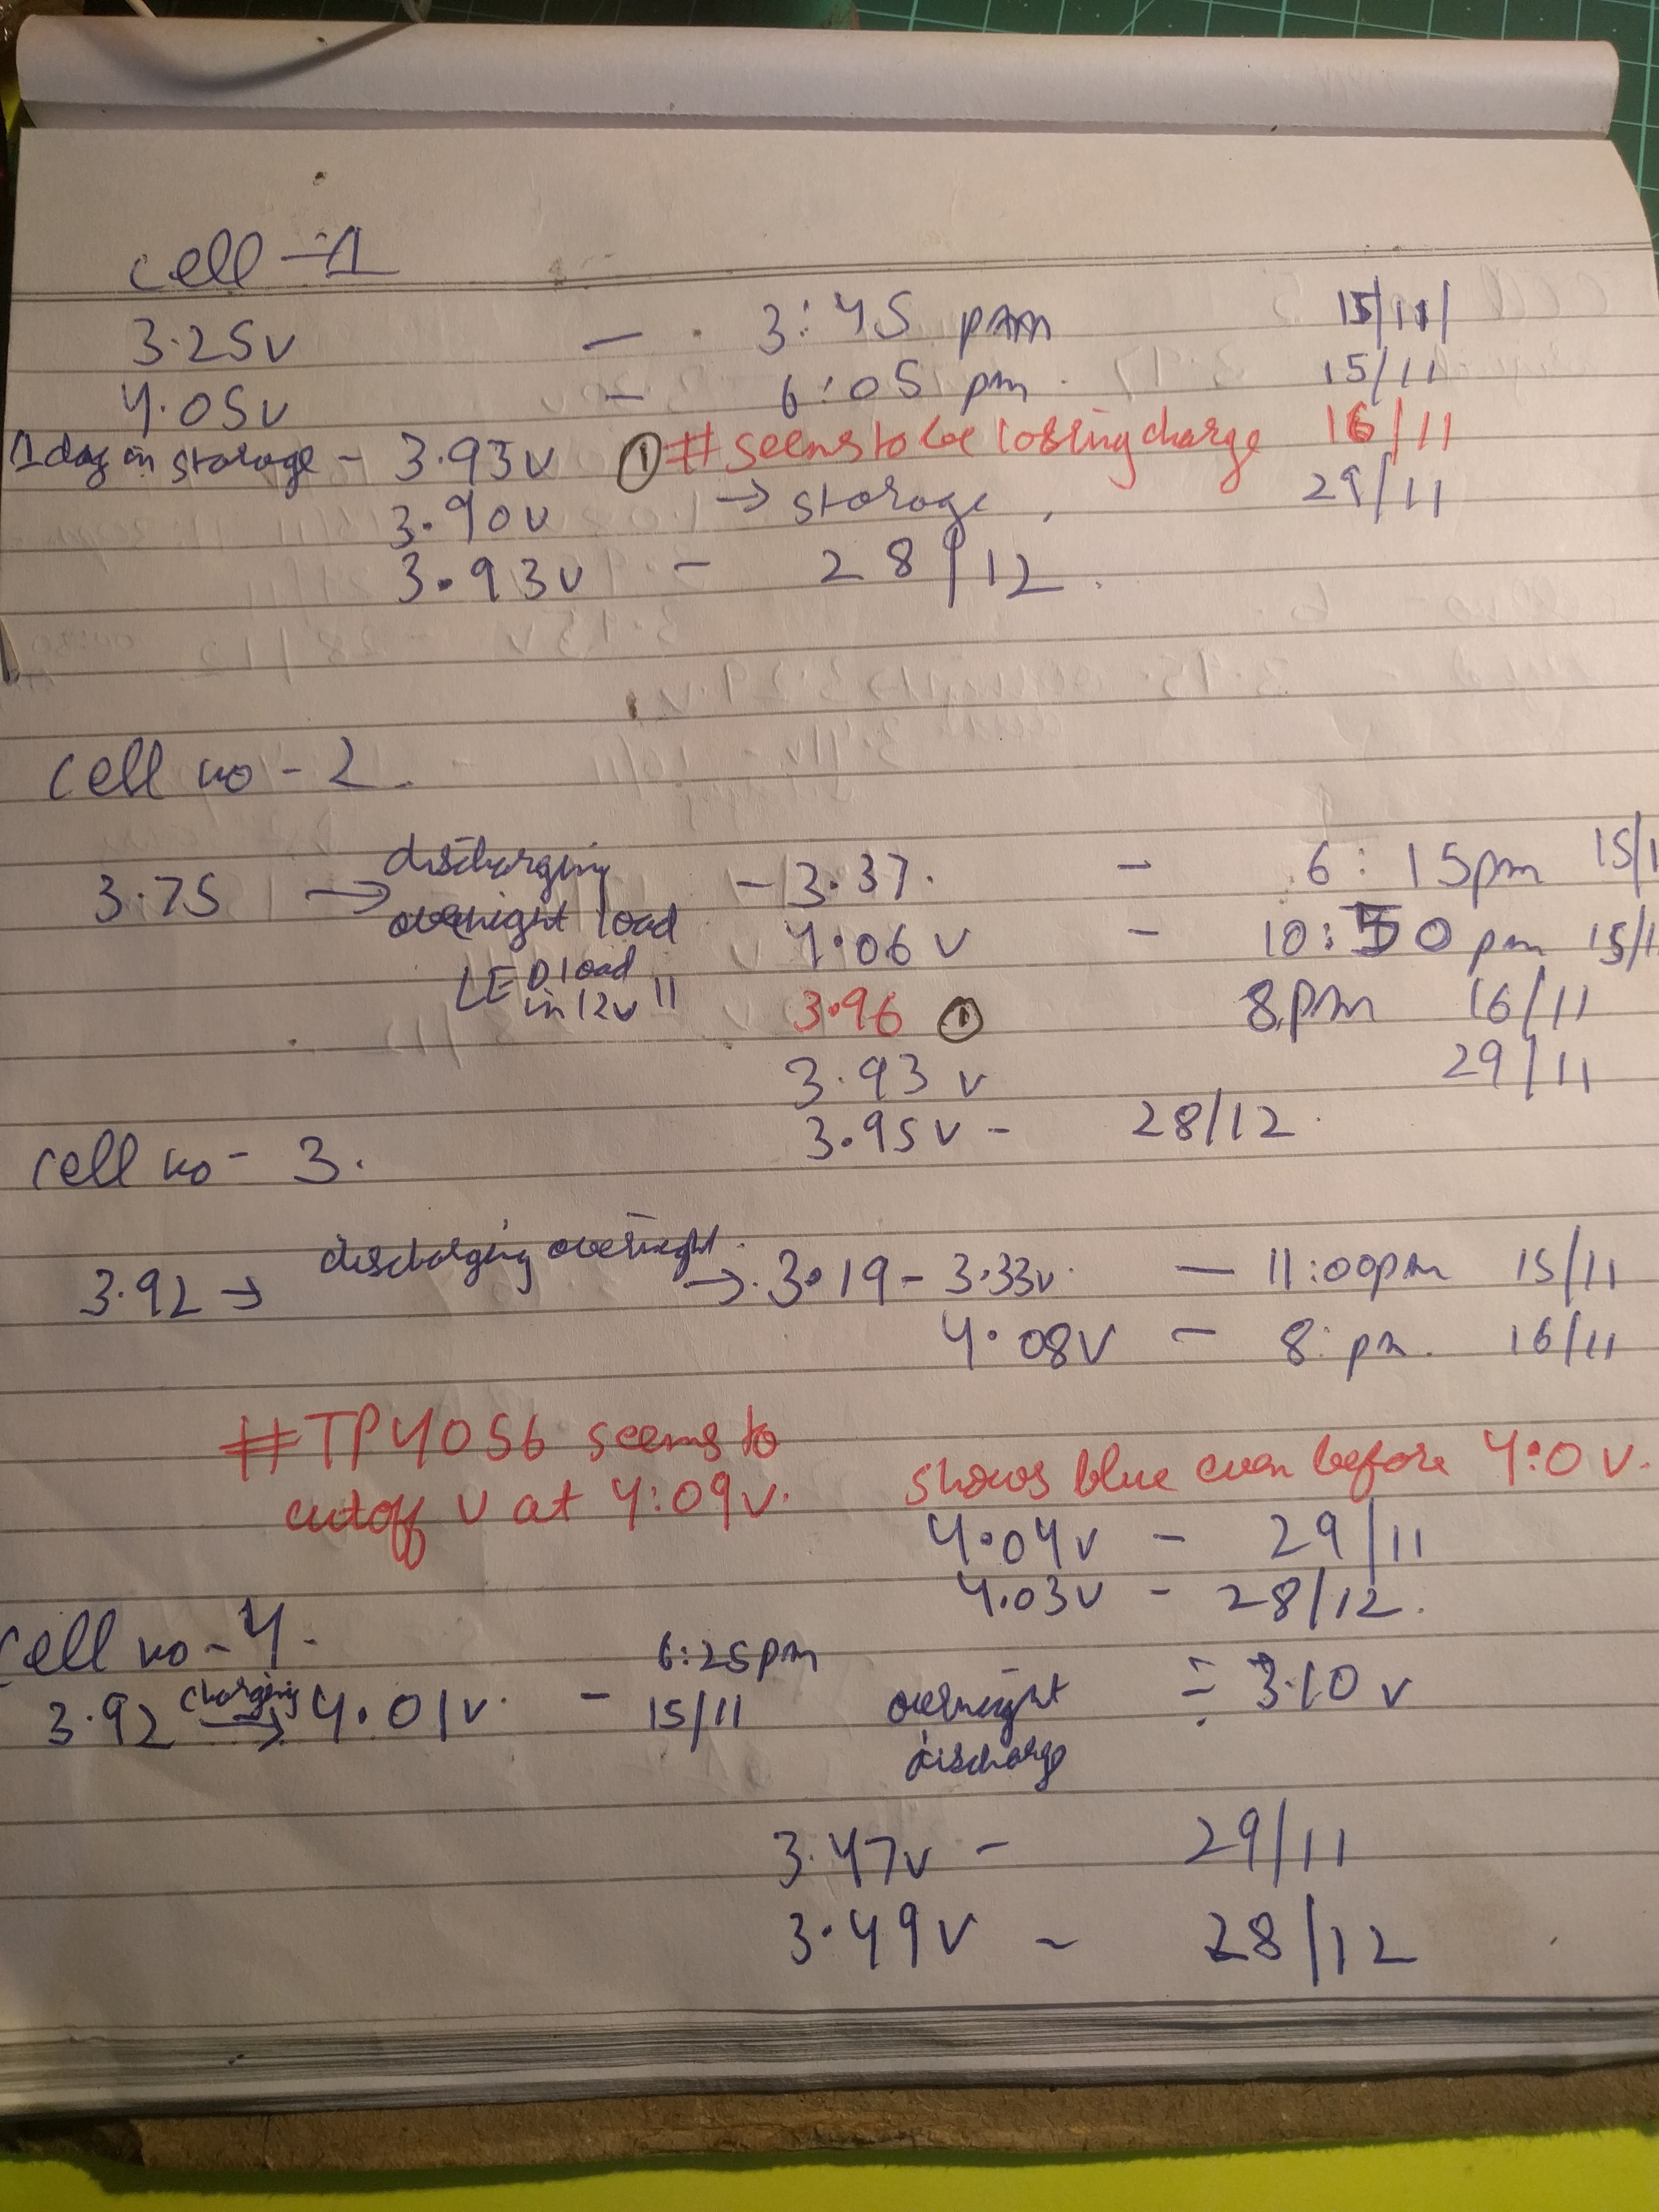 cell -1
3.25v - 3:45 pm 15/11/
4.05v - 6:05 pm 15/11
1 day in storage - 3.93v ① # seems to be lossing charge 16/11
3.90v → storage 29/11
3.93v - 28/12
cell no - 2.
3.75 → discharging overnight load - 3.37. - 6:15pm 15/1
LED load in 12v " 4.06v - 10:50 pm 15/1
3.96 ① 8pm 16/11
3.93 v 29/11
3.95v - 28/12.
cell no - 3.
3.92 → discharging overnight → 3.19 - 3.33v. - 11:00pm 15/11
4.08v - 8: pm. 16/11
# TP4056 seems to
cutoff v at 4:09v. shows blue even before 4:0 v.
4.04v - 29/11
4.03v - 28/12.
cell no - 4.
3.92 charging → 4.01v. - 6:25pm 15/11 overnight discharge = 3.10 v
3.47v - 29/11
3.49v - 28/12